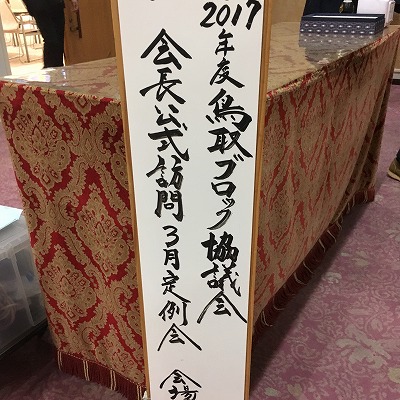 2017年度鳥取ブロック協議会
会長公式訪問3月定例会 会場